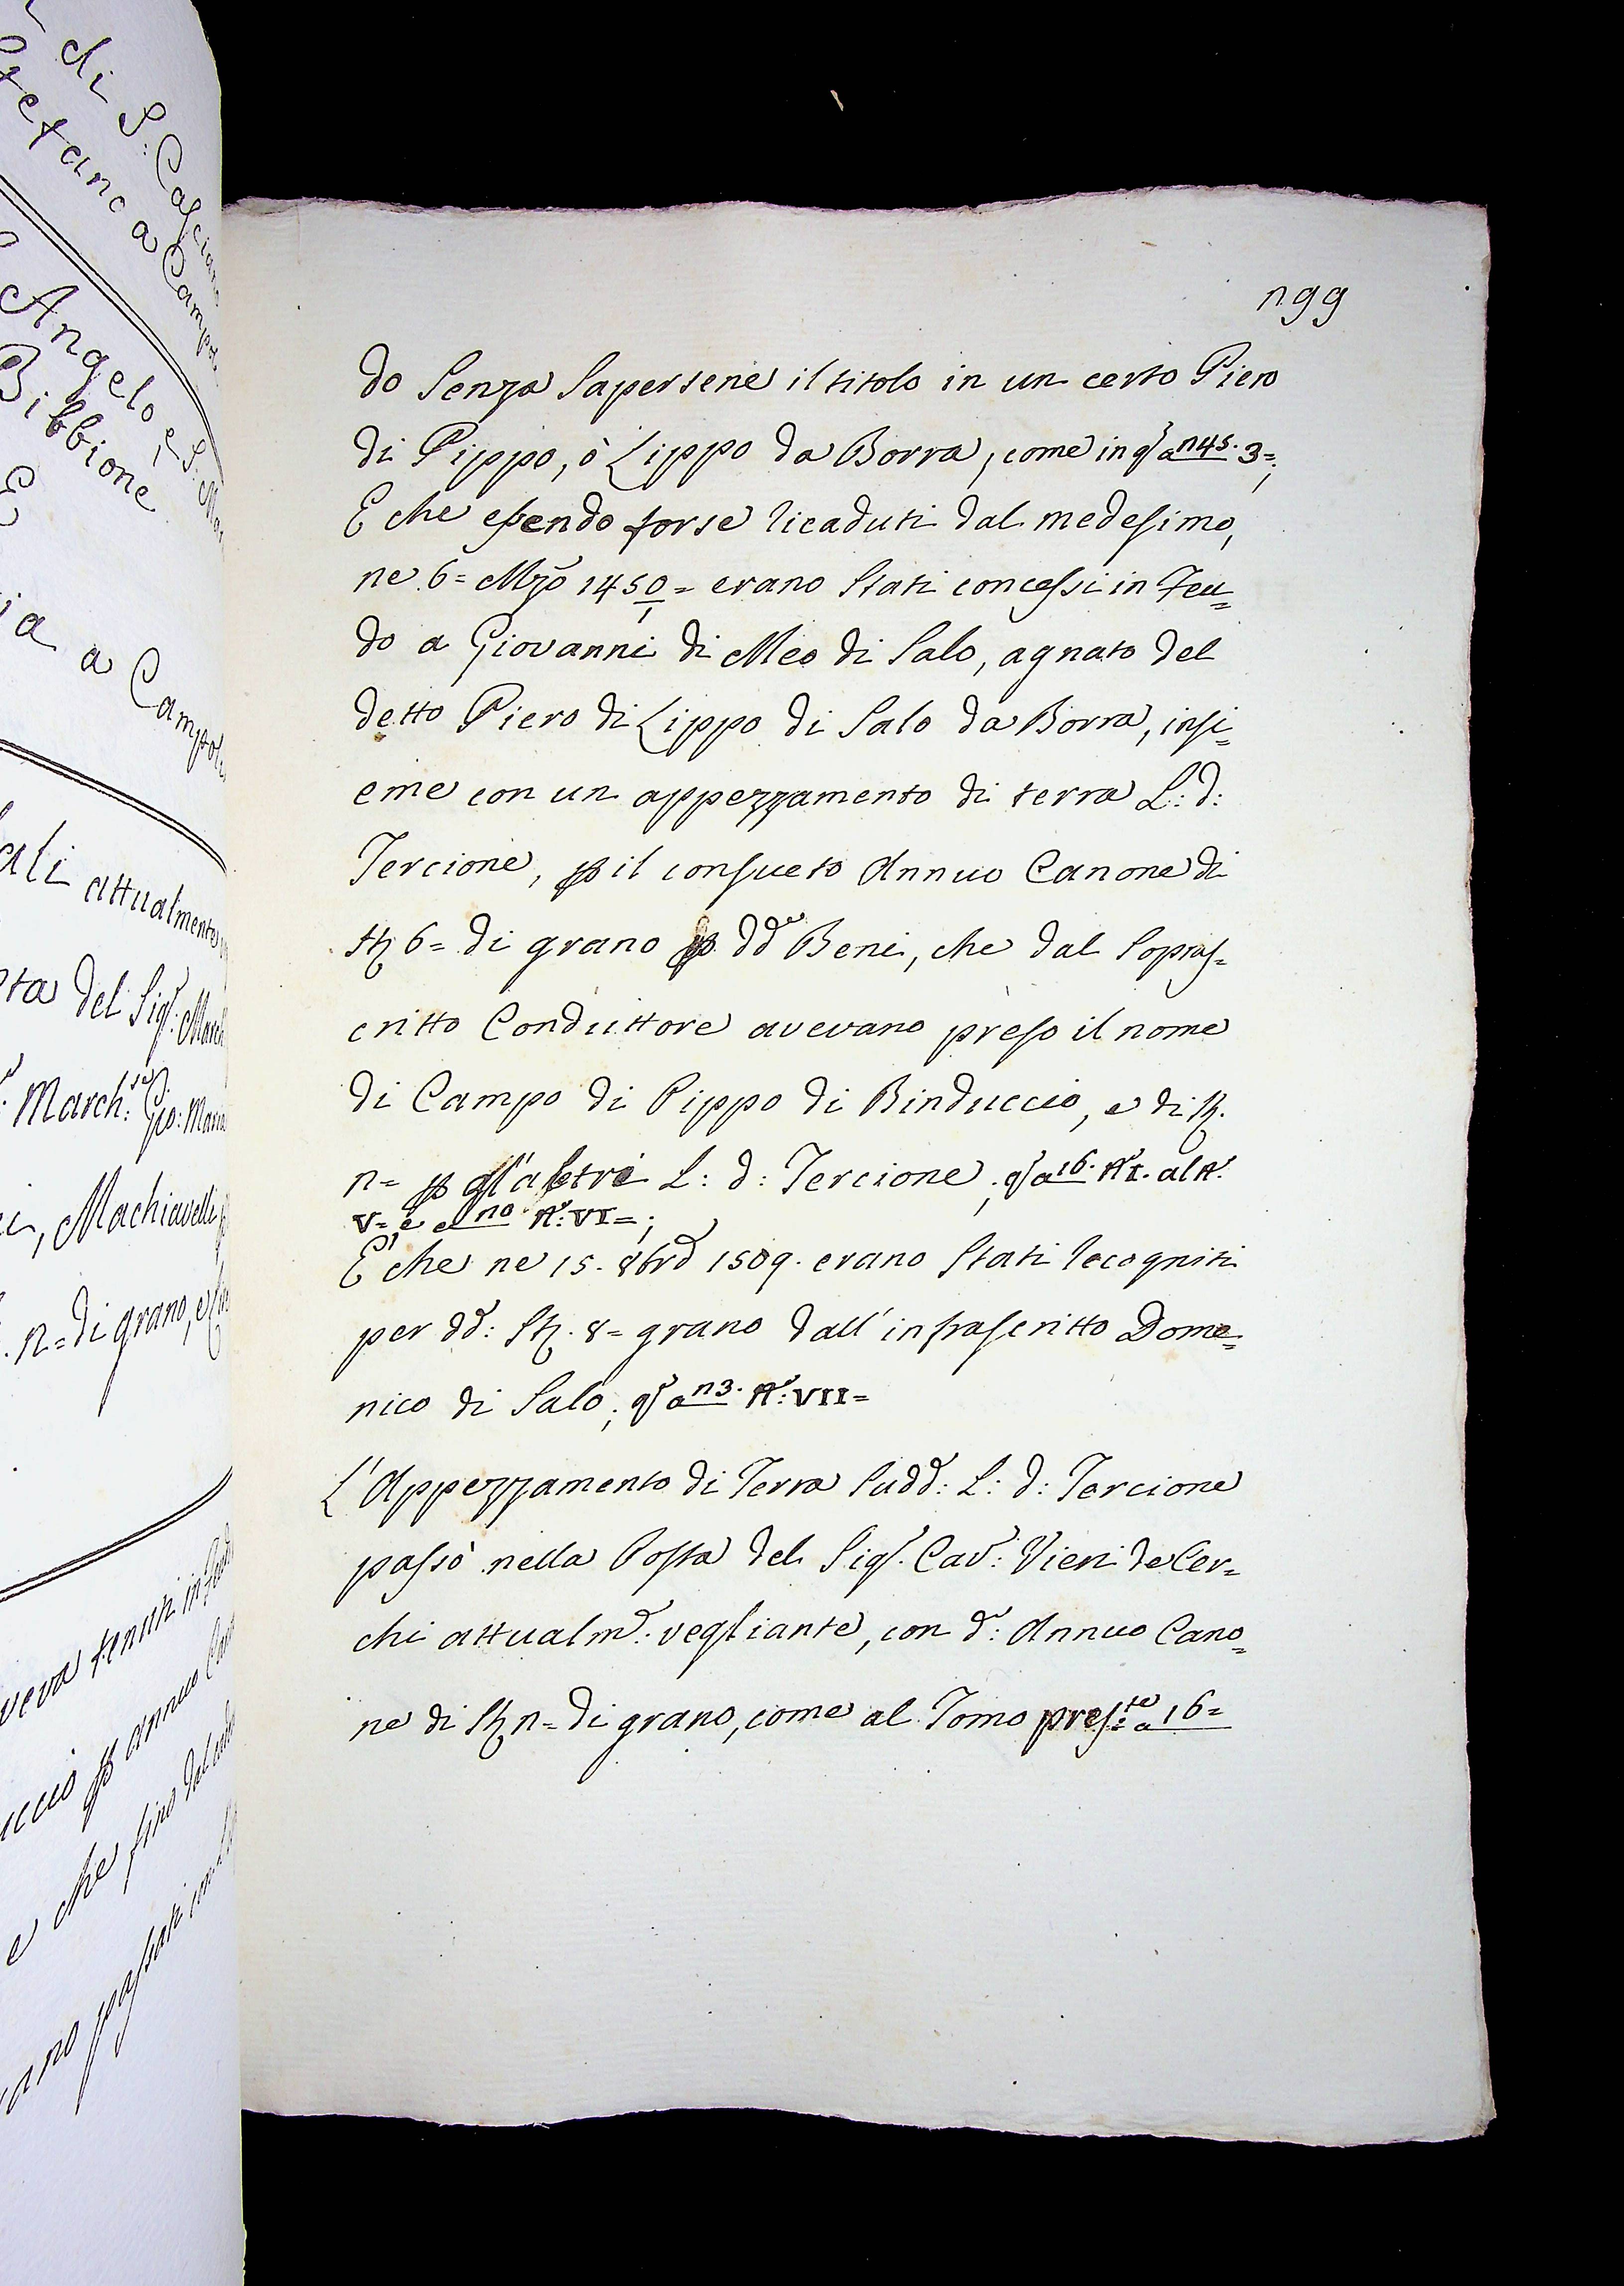 di S: Casciano
Stefano a Campoli
S. Angelo, e S: Mar
Bibbione
E
ia a Campoli
ali attualmente
sta del Sigr. March
March:se Gio: Maria
i, Machiavelli
n= di grano, e
veva tenuti in feudo
uccio p annuo Cano
e che fino dal
ano passati con
n99
do senza sapersene il titolo in un certo Piero
di Pippo, ò Lippo da Borra, come in qo a n45. 3=;
E che essendo forse ricaduti dal medesimo,
ne 6= Mzo 1450/1= erano stati concessi in Feu=
do a Giovanni di Meo di Salo, agnato del
detto Piero di Lippo di Salo da Borra, insi=
eme con un appezzamento di terra L: d:
Tercione, p il consueto Annuo Canone di
st 6= di grano p dde Beni, che dal Sopras=
critto Conduttore avevano preso il nome
di Campo di Pippo di Binduccio, e di st.
n= p gl'altri L: d: Tercione; qo a 16. No I. al No.
V= e a no No: VI=;
E che ne 15. 8bre 1509. erano stati recogniti
per dd: St. 8= grano dall'infrascritto Dome=
nico di Salo; qo a n3. No: VII=
L'Appezzamento di Terra Sudd: L: d: Tercione
passò nella Posta del Sigr. Cavr: Vieri de Cer=
chi attualme: vegliante, con do: Annuo Cano=
ne di St n= di grano, come al Tomo pres:te a 16=